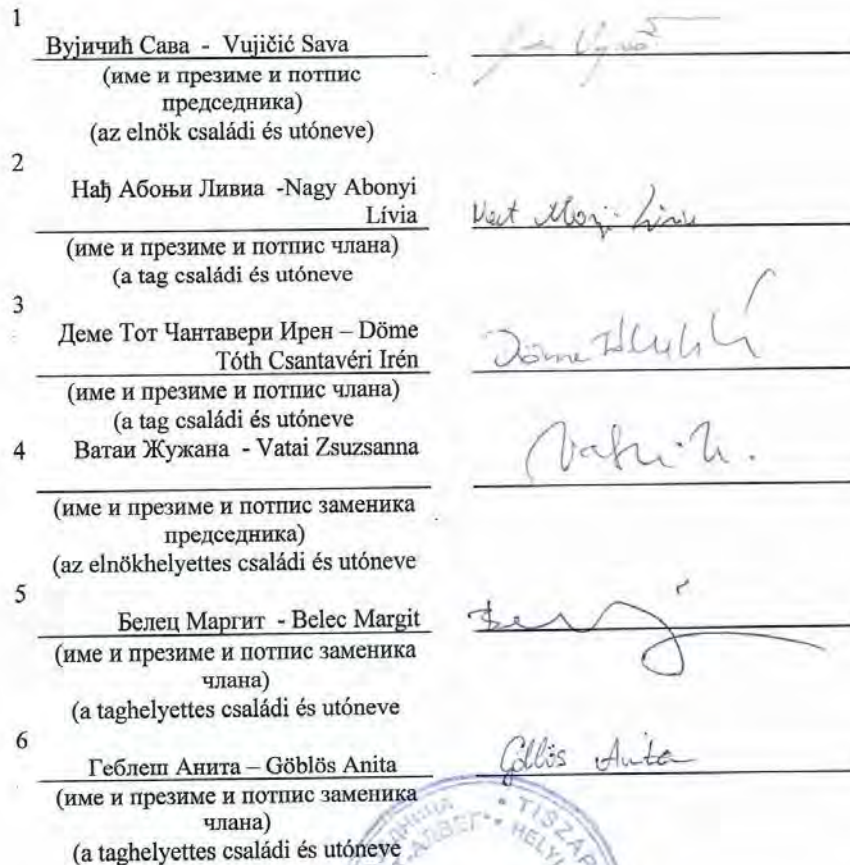 1
Вујичић Сава - Vujičić Sava
(име и презиме и потпис
председника)
(az elnök családi és utóneve)
2
Нађ Абоњи Ливиа -Nagy Abonyi
Lívia
(име и презиме и потпис члана)
(a tag családi és utóneve
3
Деме Тот Чантавери Ирен – Döme
Tóth Csantavéri Irén
Döme
(име и презиме и потпис члана)
(a tag családi és utóneve
4 Ватаи Жужана - Vatai Zsuzsanna
(име и презиме и потпис заменика
председника)
(az elnökhelyettes családi és utóneve
5
Белец Маргит - Belec Margit
(име и презиме и потпис заменика
члана)
(a taghelyettes családi és utóneve
6
Геблеш Анита – Göblös Anita
Anita
(име и презиме и потпис заменика
члана)
(a taghelyettes családi és utóneve